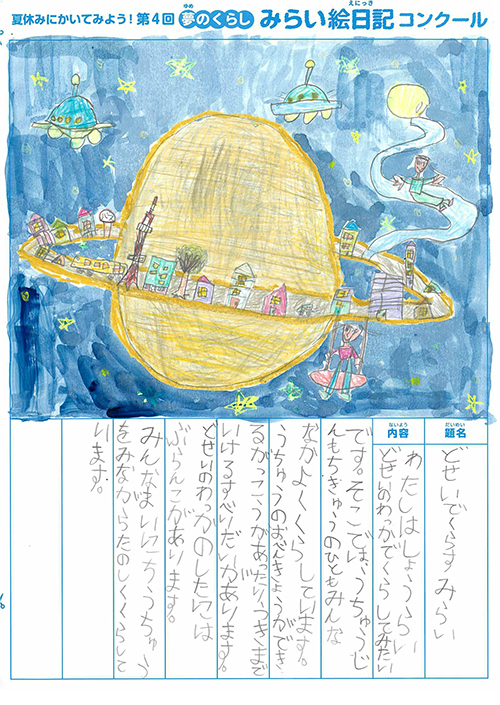 夏休みにかいてみよう！第4回 夢のくらし みらい絵日記コンクール
ゆめ
えにっき
だいめい
題名
どせいでくらすみらい
ないよう
内容
わたしはしょうらい
どせいのわっかでくらしてみたい
です。そこでは、うちゅうじ
んもちきゅうのひともみんな
なかよくくらしています。
うちゅうのおべんきょうができ
るがっこうがあったり、つきまで
いけるすべりだいがあります。
どせいのわっかのしたには
ぶらんこがあります。
みんなまいにちうちゅう
をみながらたのしくくらして
います。